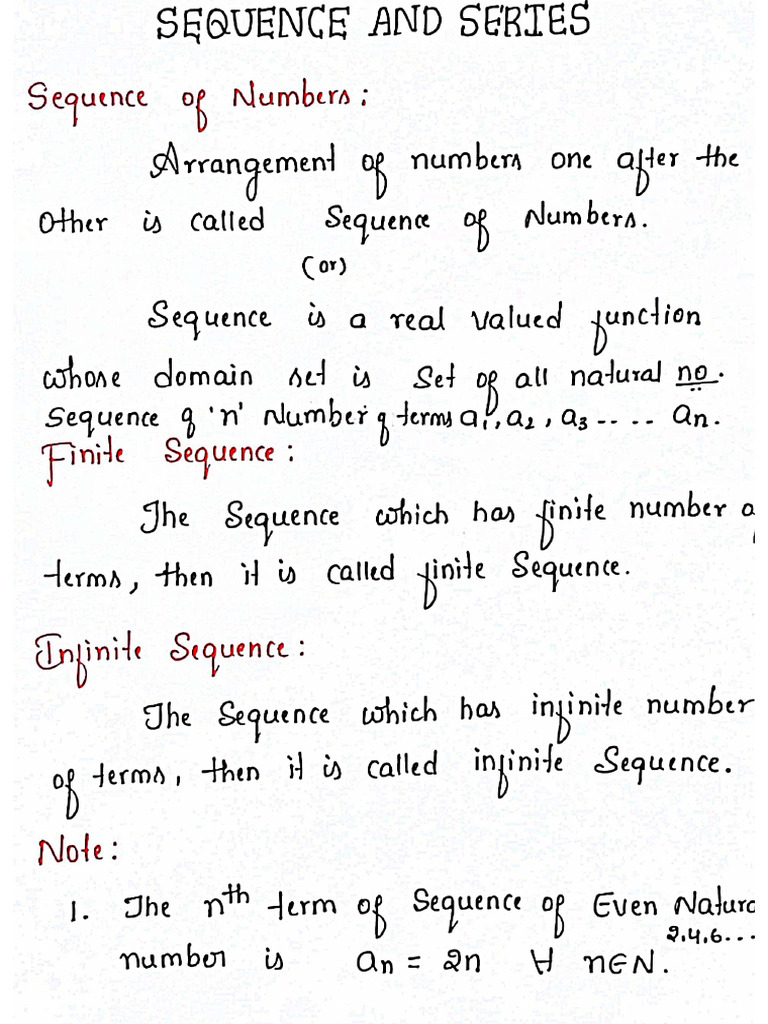 SEQUENCE AND SERIES
Sequence of Numbers:
Arrangement of numbers one after the
Other is called Sequence of Numbers.
(or)
Sequence is a real valued function
whose domain set is Set of all natural no.
Sequence of 'n' Number of terms a1, a2, a3 ..... an.
Finite Sequence:
The Sequence which has finite number o
terms, then it is called finite Sequence.
Infinite Sequence:
The Sequence which has infinite number
of terms, then it is called infinite Sequence.
Note:
1. The nth term of Sequence of Even Natura
2,4,6...
number is an = 2n ∀ n∈N.